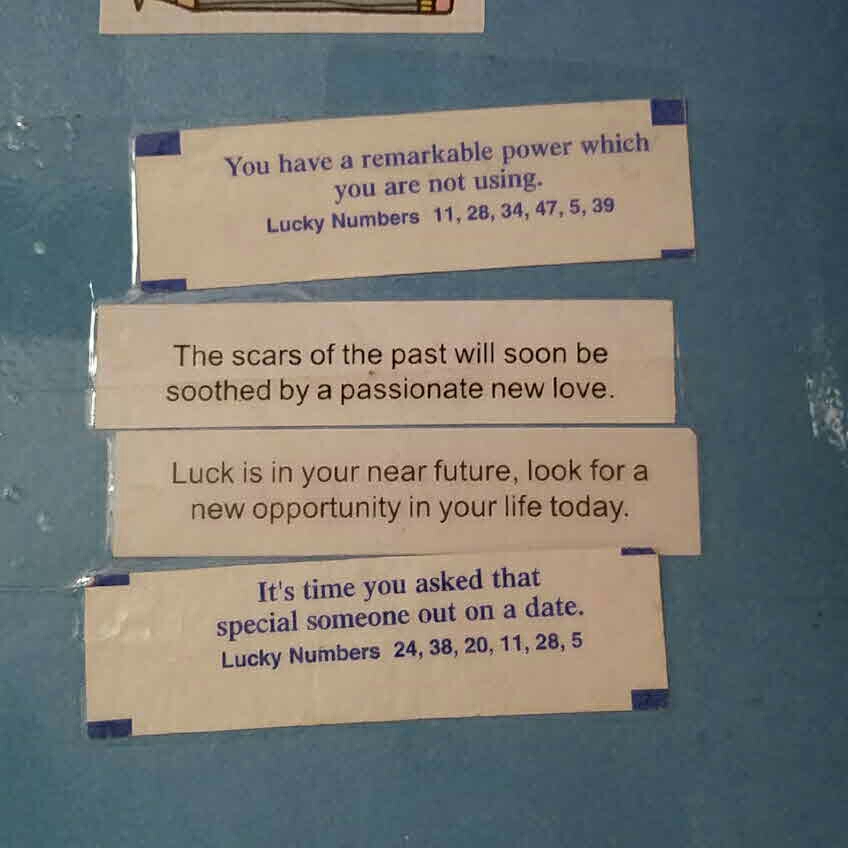 You have a remarkable power which
you are not using.
Lucky Numbers 11, 28, 34, 47, 5, 39
The scars of the past will soon be
soothed by a passionate new love.
Luck is in your near future, look for a
new opportunity in your life today.
It's time you asked that
special someone out on a date.
Lucky Numbers 24, 38, 20, 11, 28, 5